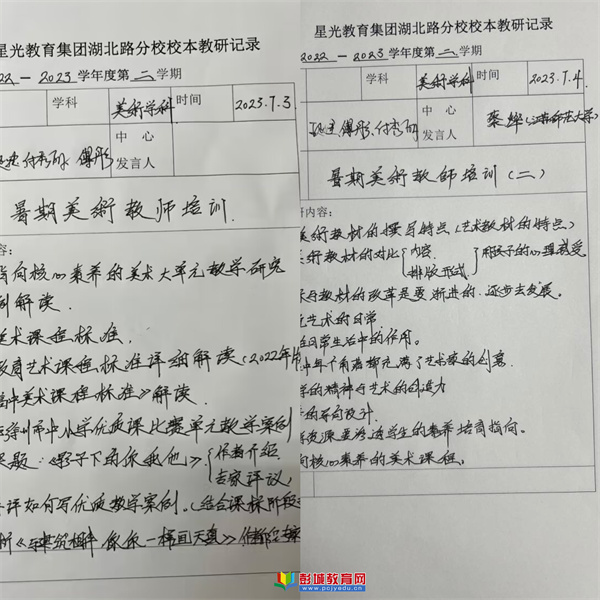 星光教育集团湖北路分校校本教研记录
2022 — 2023 学年度第 二 学期
学科 美術学科 时间 2023.7.3
付秀丽 傅彤
中心
发言人
暑期美術教师培训.
容:
指向核心素养的美术大单元教学研究
例解读.
美术课程标准.
教育艺术课程标准详细解读(2022年版
高中美术课程标准》解读.
徐州市中小学优质课比赛单元教学案例
课题:《影子下的你我他》
作者介绍
专家评议,
评如何写优质教学案例.(结合课标阶段
星光教育集团湖北路分校校本教研记录
2022 — 2023 学年度第 二 学期
学科 美術学科 时间 2023.7.4
傅彤.付秀丽
中心
发言人
暑期美術教师培训(二)
内容:
美術教材的撰写特点(艺术教材的特点)
美術教材的对比
内容.
排版形式.
和孩子的心理感受
教材的改革是要渐进的.逐步去发展.
艺术的日常
日常生活中的作用.
中每个角落都充满了艺术家的创意.
的精神与艺术的创造力
的布局设计.
资源要渗透学生的素养培育指向.
向核心素养的美术课程.
彭城教育网
www.pcjyedu.cn